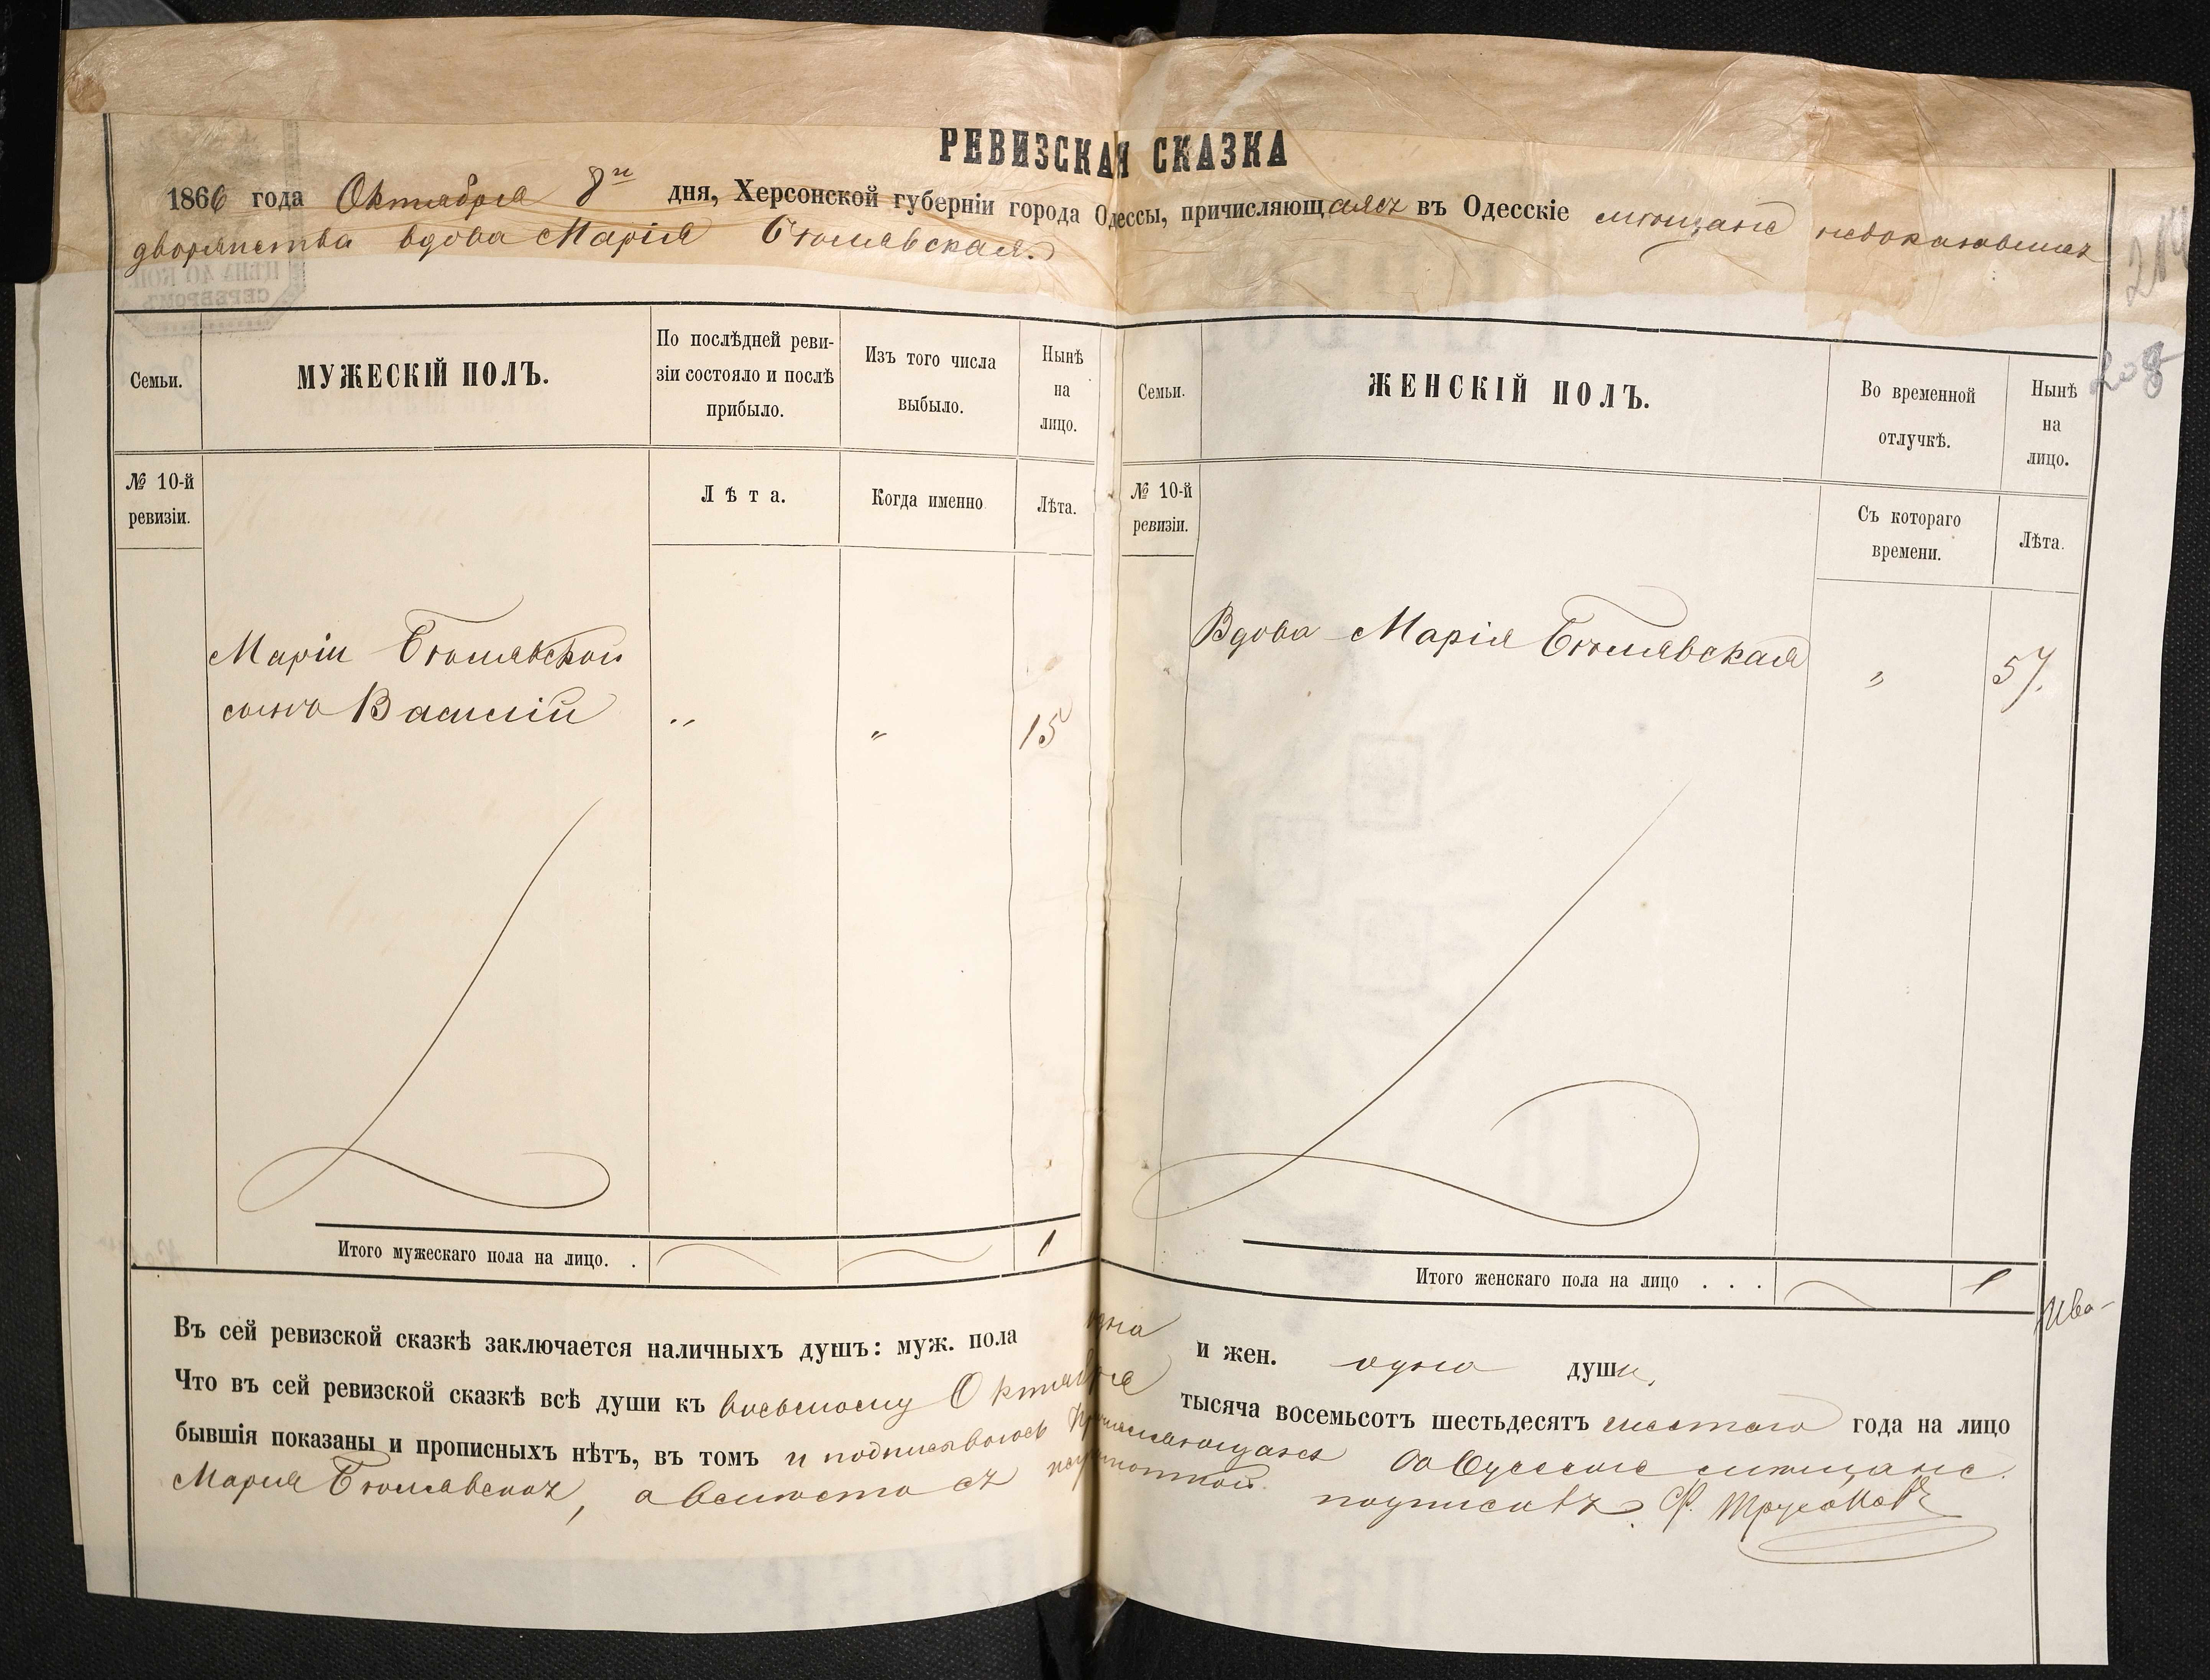 РЕВИЗСКАЯ СКАЗКА
1866 года Октября 8го дня, Херсонской губерніи города Одессы, причисляющаяся въ Одесскіе мѣщане недоказавшая
дворянства вдова Марія
Семьи.
МУЖЕСКІЙ ПОЛЪ.
По послѣдней реви-
зіи состояло и послѣ
прибыло.
Изъ того числа
выбыло.
Нынѣ
на
лицо.
№ 10-й
ревизіи.
Лѣта.
Когда именно
Лѣта.
Маріи
сынъ Василій " " 15
Итого мужескаго пола на лицо. . 1
Семьи.
ЖЕНСКІЙ ПОЛЪ.
Во временной
отлучкѣ.
Нынѣ
на
лицо.
№ 10-й
ревизіи.
Съ котораго
времени.
Лѣта.
Вдова Марія " 57.
Итого женскаго пола на лицо . . . 1
Въ сей ревизской сказкѣ заключается наличныхъ душъ: муж. пола одна и жен. одна души,
Что въ сей ревизской сказкѣ всѣ души къ восьмому Октября тысяча восемьсотъ шестьдесятъ шестаго года на лицо
бывшія показаны и прописныхъ нѣтъ, въ томъ и подписываюсь Причисляющаяся въ Одесскіе мѣщане.
Марія а вмѣсто съ подписалъ Ф.
208